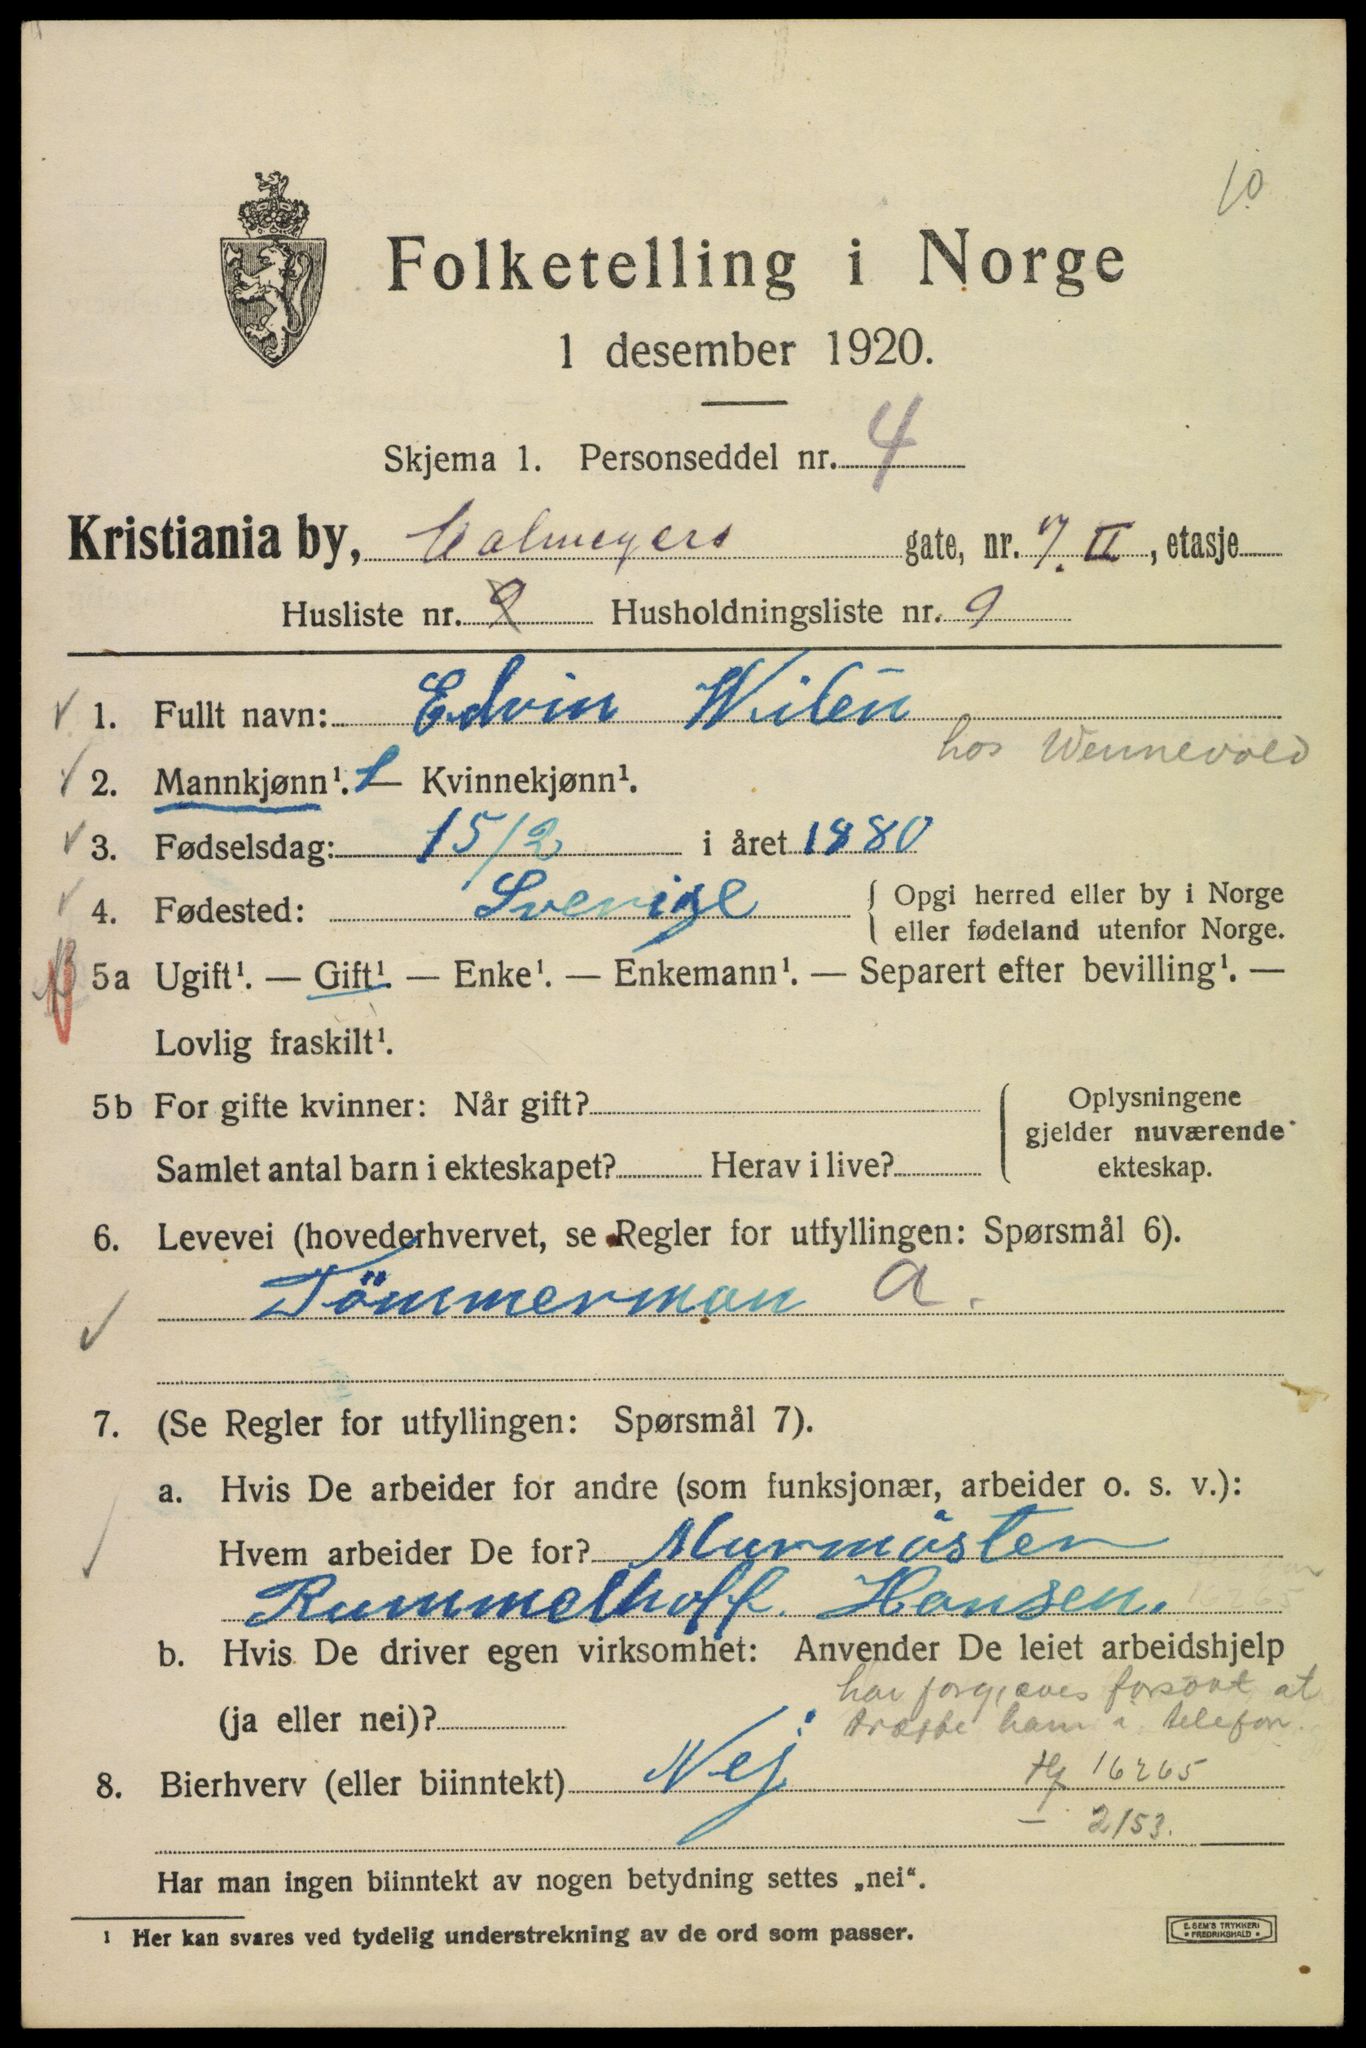 10
Folketelling i Norge
1 desember 1920.
Skjema 1. Personseddel nr. 4
Kristiania by, Calmeyers gate, nr. 7. II, etasje
Husliste nr. 9 Husholdningsliste nr. 9
1. Fullt navn: Edvin Wilén
hos Wennevold
2. Mannkjønn¹. 1 — Kvinnekjønn¹.
3. Fødselsdag: 15/2 i året 1880
4. Fødested: Sverige { Opgi herred eller by i Norge
eller fødeland utenfor Norge.
5a Ugift¹. — Gift¹. — Enke¹. — Enkemann¹. — Separert efter bevilling¹. —
Lovlig fraskilt¹.
5b For gifte kvinner: Når gift?
Samlet antal barn i ekteskapet? Herav i live?
Oplysningene
gjelder nuværende
ekteskap.
6. Levevei (hovederhvervet, se Regler for utfyllingen: Spørsmål 6).
Tömmerman a.
7. (Se Regler for utfyllingen: Spørsmål 7).
a. Hvis De arbeider for andre (som funksjonær, arbeider o. s. v.):
Hvem arbeider De for? Murmäster
Rummelhoff. Hansen.
16265
b. Hvis De driver egen virksomhet: Anvender De leiet arbeidshjelp
(ja eller nei)?
har forgjæves forsøkt at
træffe ham i telefon.
8. Bierhverv (eller biinntekt) Nej
16265
— 2153.
Har man ingen biinntekt av nogen betydning settes „nei“.
¹ Her kan svares ved tydelig understrekning av de ord som passer.
E. SEM'S TRYKKERI
FREDRIKSHALD